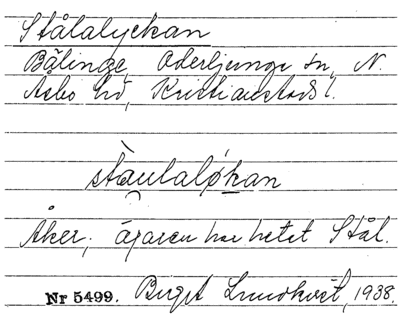 Stålalyckan
Bälinge, Oderljunga sn, N.
Åsbo hd, Kristianstads l.
stäulaløkan
Åker; ägaren har hetat Stål.
Nr 5499. Birgit Lundkvist, 1938.